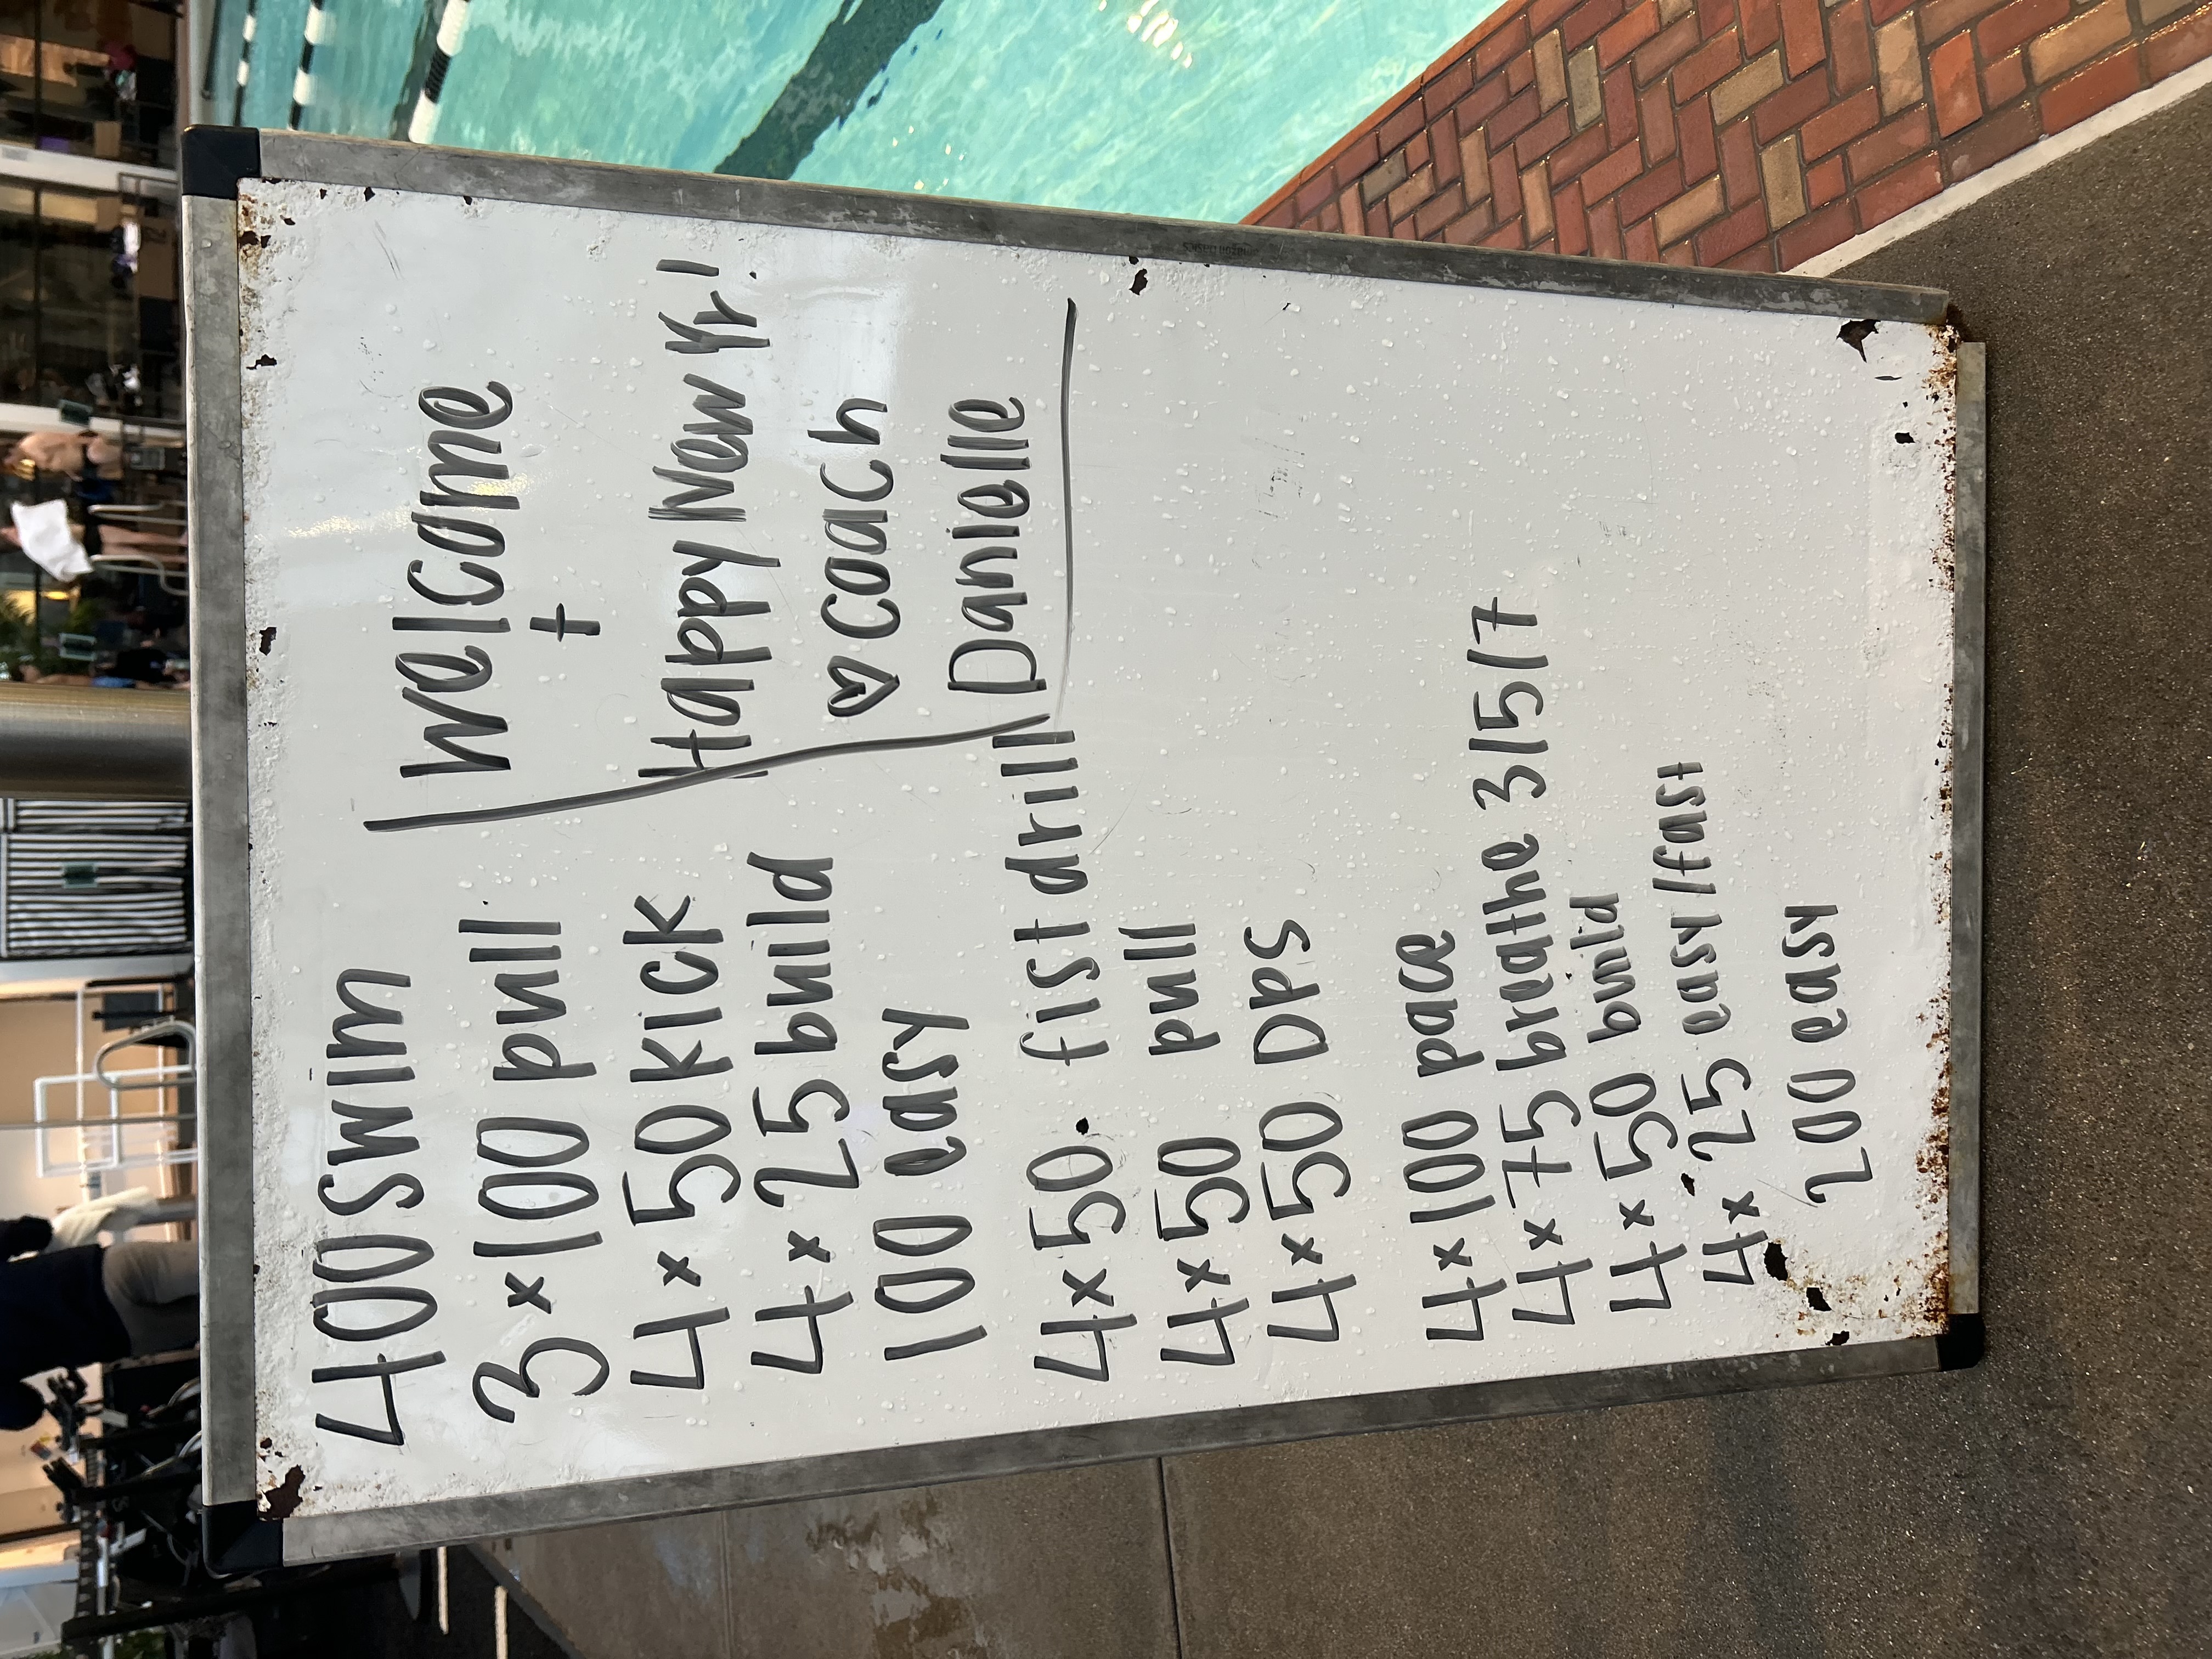 400 swim
3 x 100 pull
4 x 50 kick
4 x 25 build
100 easy
4 x 50 fist drill
4 x 50 pull
4 x 50 DPS
4 x 100 pace
4 x 75 breathe 3/5/7
4 x 50 build
4 x 25 easy/fast
200 easy
welcome
+
Happy New Yr!
♡ coach
Danielle